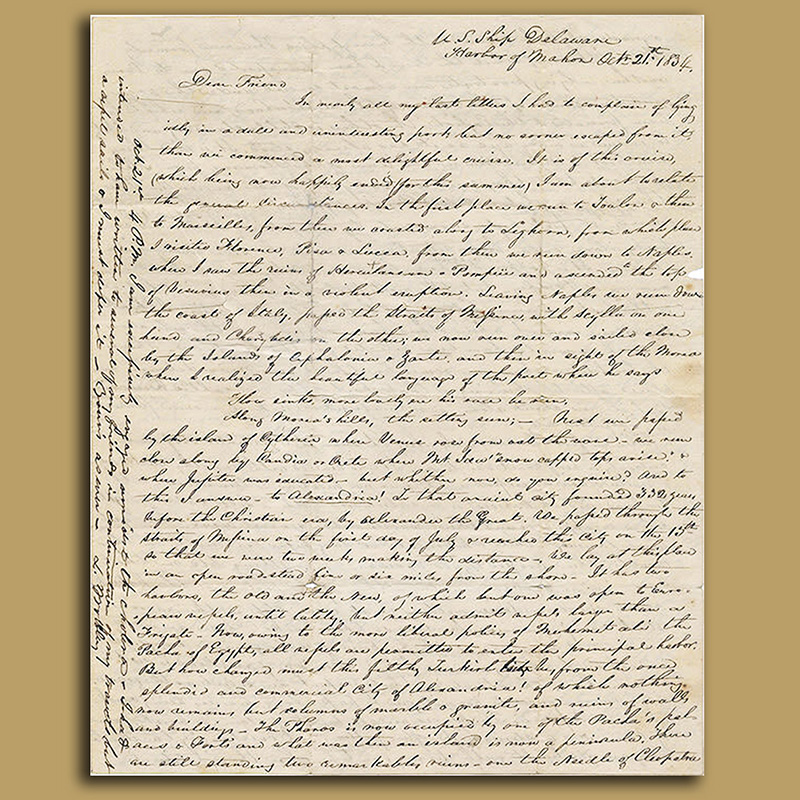 U.S. Ship Delaware
Harbor of Mahon Octr. 21st. 1834.
Dear Friend
In nearly all my last letters I had to complain of lying
idly in a dull and uninteresting port, but no sooner escaped from it,
than we commenced a most delightful cruise. It is of this cruise,
(which being now happily ended for this summer) I am about to relate
the general circumstances. In the first place we run to Toulon & then
to Marseilles, from then we coasted along to Leghorn, from which place
I visited Florence, Pisa & Lucca, from then we run down to Naples,
where I saw the ruins of Herculaneum & Pompeii and ascended the top
of Vesuvius then in a violent eruption. Leaving Naples we run down
the coast of Italy, passed the Straits of Messina, with Scylla on one
hand and Charybdis on the other; we now run once and sailed close
by the Islands of Cephalonia & Zante, and then in sight of the Morea
when I realized the beautiful language of the poet where he says
"Slow sinks more lovely ere his race be run,
Along Morea's hills, the setting sun; — Next we passed
by the island of Cytherea where Venus rose from out the wave - we run
close along by Candia or Crete where Mt. snow capped tops arise &
where Jupiter was educated - but whither now, do you enquire? and to
this I answer - to Alexandria! I that ancient city founded 332 years
before the Christian era, by Alexander the Great. We passed through the
straits of Messina on the first day of July & reached this City on the 15th
so that we were two weeks making the distance - We lay at this place
in an open roadstead five or six miles from the shore - It has two
harbors, the old and the New, of which but one was open to Euro-
pean vessels, until lately, but neither admits vessels larger than a
Frigate - Now, owing to the more liberal policy of Mechemet Ali the
Pacha of Egypt, all vessels are permitted to enter the principal harbor.
But how changed must this filthy Turkish be, from the once
splendid and commercial City of Alexandria! of which nothing
now remains but columns of marble & granite, and ruins of walls
and buildings - The Pharos is now occupied by one of the Pacha's pal-
aces & Forts and what was then an island is now a peninsula. There
are still standing two remarkable ruins - one the Needle of Cleopatra
Oct. 21st 4 P.M. I am exceedingly against the cholera -
intended to have written to several of my friends in continuation of my travels but
a vessel sails & I must defer it - Yours as ever -